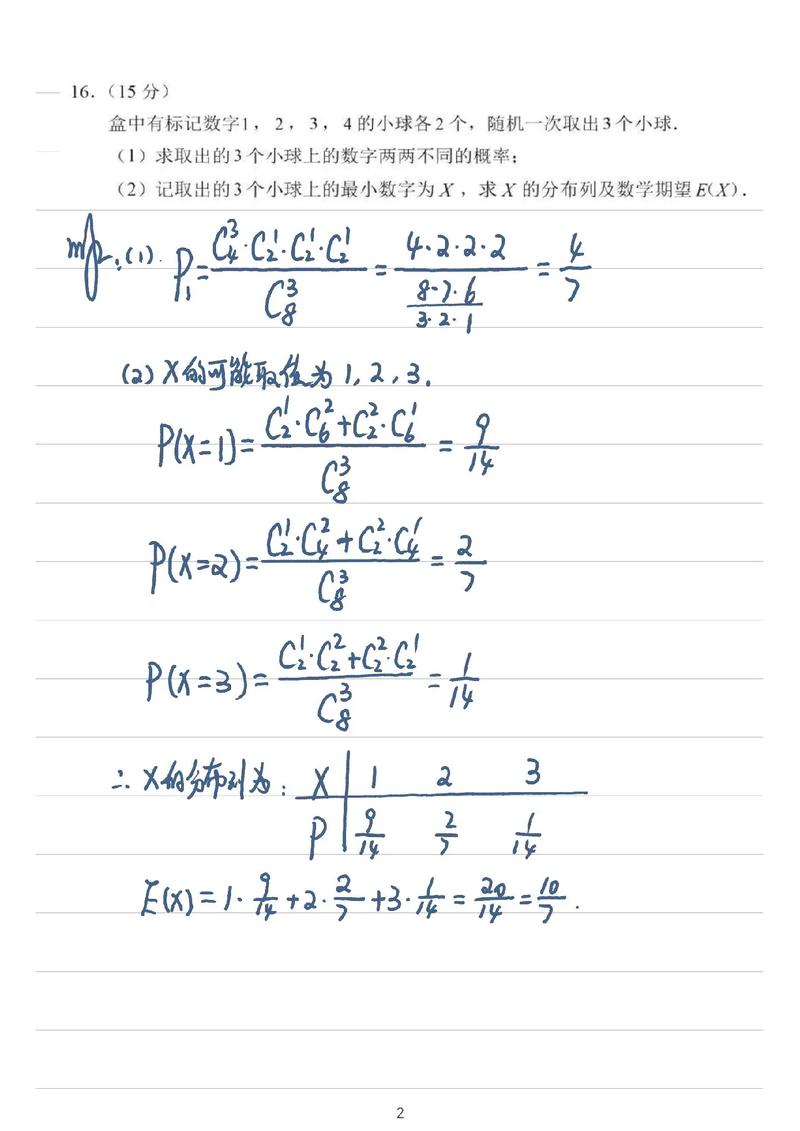 16.（15 分）
盒中有标记数字1，2，3，4的小球各2个，随机一次取出3个小球.
（1）求取出的3个小球上的数字两两不同的概率；
（2）记取出的3个小球上的最小数字为 X ，求 X 的分布列及数学期望 E(X).
解:(1). P₁ = (C₄³·C₂¹·C₂¹·C₂¹)/C₈³ = (4·2·2·2)/((8·7·6)/(3·2·1)) = 4/7
(2) X的可能取值为 1, 2, 3.
P(X=1) = (C₂¹·C₆²+C₂²·C₆¹)/C₈³ = 9/14
P(X=2) = (C₂¹·C₄²+C₂²·C₄¹)/C₈³ = 2/7
P(X=3) = (C₂¹·C₂²+C₂²·C₂¹)/C₈³ = 1/14
∴ X的分布列为: X 1 2 3
P 9/14 2/7 1/14
E(X) = 1·9/14 + 2·2/7 + 3·1/14 = 20/14 = 10/7.
2